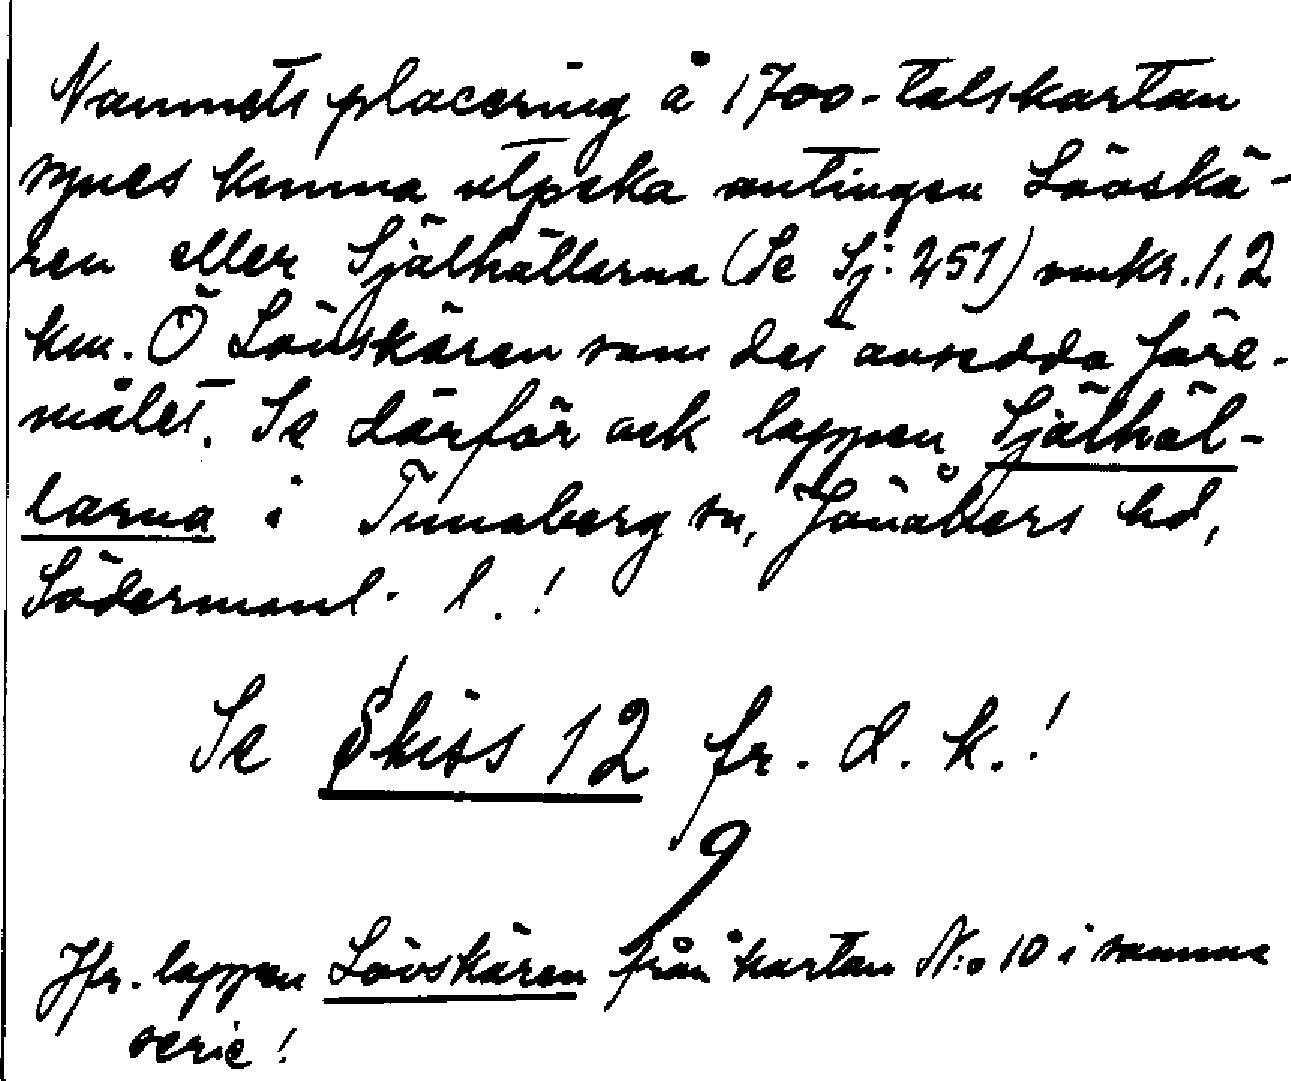 Namnets placering å 1700-talskartan
synes kunna utpeka antingen Lövskä-
ren eller Själhällarna (Se Sj: 251) omkr. 1,2
km. Ö Lövskären som det avsedda före-
målet. Se därför ock lappen Själhäl-
larna i Tunaberg sn, Jönåkers hd,
Södermanl. l.!
Se Skiss 12 fr. d. k.!
9
Jfr. lappen Lövskären från kartan N:o 10 i samma
serie!